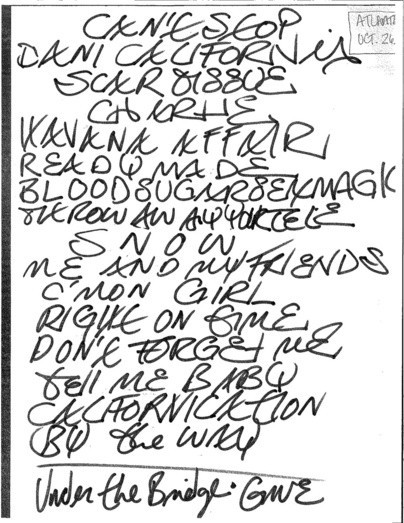 ATLANTA
OCT. 26
CAN'T STOP
DANI CALIFORNIA
SCAR TISSUE
CHARLIE
HAVANA AFFAIR
READY MADE
BLOODSUGARSEXMAGIK
THROW AWAY YOUR TELE
SNOW
ME AND MY FRIENDS
C'MON GIRL
RIGHT ON TIME
DON'T FORGET ME
tell ME BABY
CALIFORNICATION
BY the WAY
Under the Bridge · GIVE